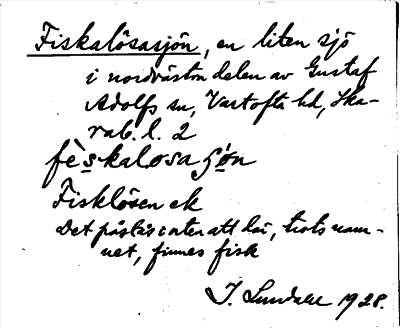 Fiskalösasjön, en liten sjö
i nordvästra delen av Gustaf
Adolfs sn, Vartofta hd, Ska-
rab. l. 2
fèskalosa ʃøn
Fisklösen ek
Det påstås att, trots nam-
net, finnes fisk
J. Lundahl 1928.